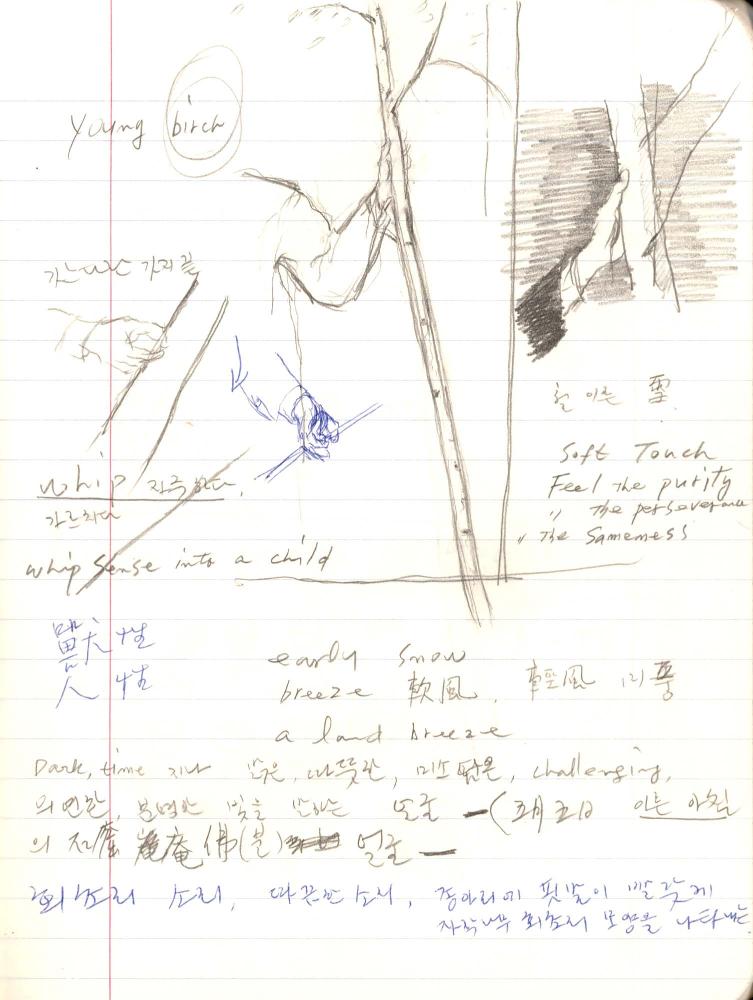 young birch
가는 가지로
whip 자극하다,
가르치다
whip sense into a child
철 이른 雪
Soft Touch
Feel the purity
〃 the perseverance
〃 The Sameness
獸性
人性
early snow
breeze 軟風, 軽風 미풍
a land breeze
Dark, time 지나 따뜻한, 미소 challenging,
의연한, 빛을 이른 아침
의 庵 佛(불)
회초리 소리, 따끈한 소리, 종아리에 핏발이 빨갛게
자작나무 회초리 모양을 나타내는